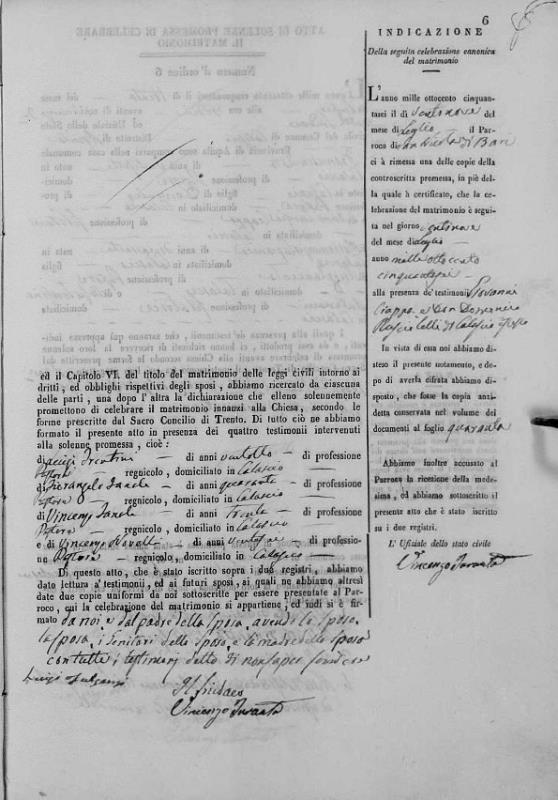 6
INDICAZIONE
Della seguita celebrazione canonica
del matrimonio
L'anno mille ottocento cinquan-
tasei il dì ventinove del
mese di Luglio — il Par-
roco di San Nicola di Bari
ci à rimessa una delle copie della
controscritta promessa, in piè del-
la quale h certificato, che la ce-
lebrazione del matrimonio è segui-
ta nel giorno ventinove
del mese di Luglio —
anno mille ottocento
cinquantasei —
alla presenza de' testimonii Giovanni
Ciappa e Don Domenico
di Calascio
In vista di essa noi abbiamo di-
steso il presente notamento, e do-
po di averla cifrata abbiamo di-
sposto, che fosse la copia anzi-
detta conservata nel volume dei
documenti al foglio quaranta
Abbiamo inoltre accusato al
Parroco la ricezione della mede-
sima, ed abbiamo sottoscritto il
presente atto che è stato iscritto
su i due registri.
L' Ufiziale dello stato civile
Vincenzo Taranta
ed il Capitolo VI. del titolo del matrimonio delle leggi civili intorno ai
dritti, ed obblighi rispettivi degli sposi, abbiamo ricercato da ciascuna
delle parti, una dopo l'altra la dichiarazione che elleno solennemente
promettono di celebrare il matrimonio innanzi alla Chiesa, secondo le
forme prescritte dal Sacro Concilio di Trento. Di tutto ciò ne abbiamo
formato il presente atto in presenza dei quattro testimonii intervenuti
alla solenne promessa, cioè:
di Luigi — di anni ventotto — di professione
Pastore — regnicolo, domiciliato in Calascio
di Pierangelo — di anni quaranta — di professione
Pastore — regnicolo, domiciliato in Calascio
di Vincenzo — di anni trenta — di professione
Pastore — regnicolo, domiciliato in Calascio
e di Vincenzo — di anni — di professio-
ne Pastore — regnicolo, domiciliato in Calascio —
Di questo atto, che è stato iscritto sopra i due registri, abbiamo
dato lettura a' testimonii, ed ai futuri sposi, ai quali ne abbiamo altresì
date due copie uniformi da noi sottoscritte per essere presentate al Par-
roco, cui la celebrazione del matrimonio si appartiene, ed indi si è fir-
mato da noi e dal padre della Sposa, avendo lo Sposo,
la Sposa, i Genitori dello Sposo, e la madre della Sposa
con tutti i testimonj detto di non saper scrivere
Luigi
Il Sindaco
Vincenzo Taranta